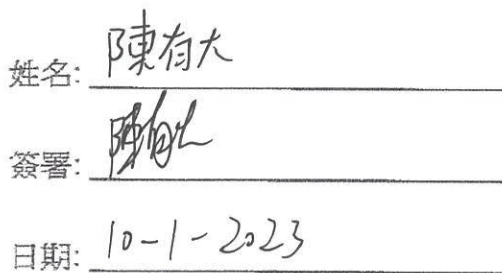 姓名: 陳有大
簽署: 陳有大
日期: 10-1-2023